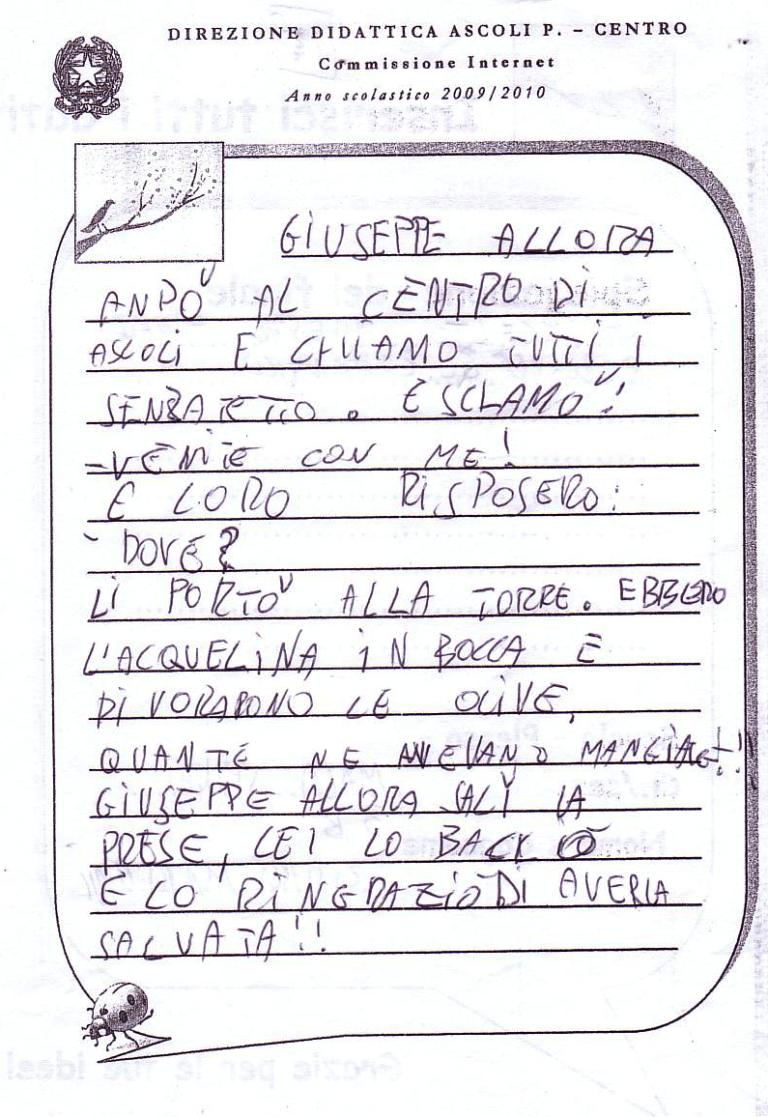 DIREZIONE DIDATTICA ASCOLI P. – CENTRO
Commissione Internet
Anno scolastico 2009/2010
GIUSEPPE ALLORA
ANDÒ AL CENTRO DI
ASCOLI E CHIAMO TUTTI I
SENZATETTO. ESCLAMÒ!
-VENITE CON ME!
E LORO RISPOSERO:
- DOVE?
LI PORTÒ ALLA TORRE. EBBERO
L'ACQUELINA IN BOCCA E
DIVORARONO LE OLIVE,
QUANTE NE AVEVANO MANGIATE!!
GIUSEPPE ALLORA SALÌ LA
PRESE, LEI LO BACIÒ
E LO RINGRAZIÒ DI AVERLA
SALVATA!!